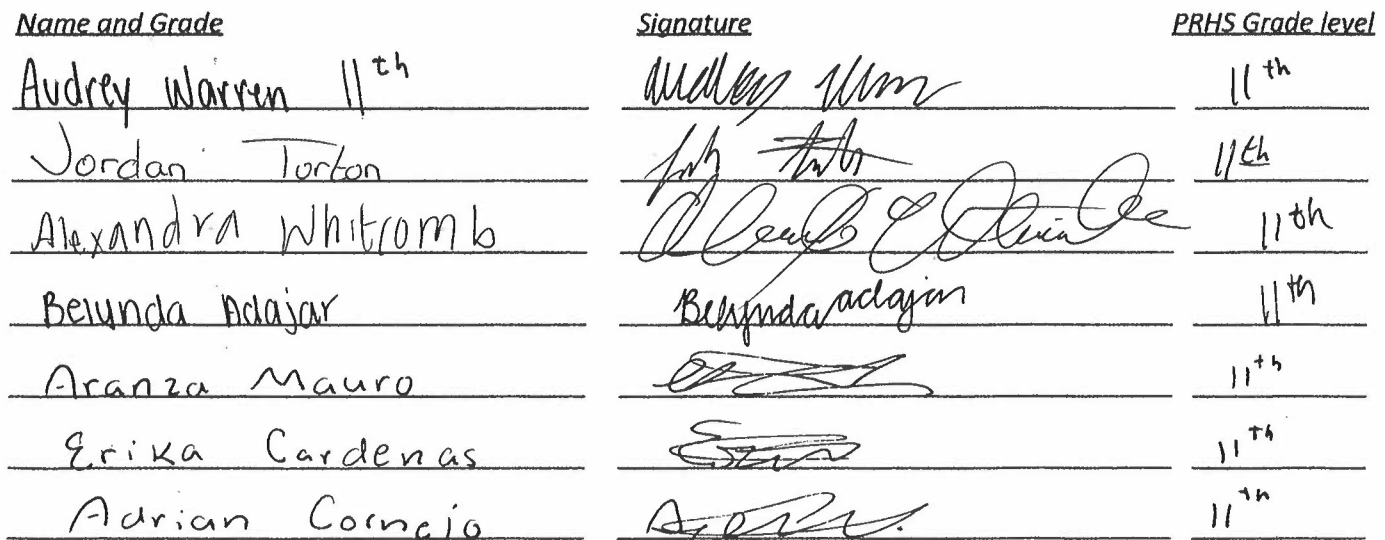 Name and Grade Signature PRHS Grade level
Audrey Warren 11th 11th
Jordan Torton 11th
Alexandra Whitcomb 11th
Belynda Adajar Belynda adajar 11th
Aranza Mauro 11th
Erika Cardenas 11th
Adrian Cornejo 11th